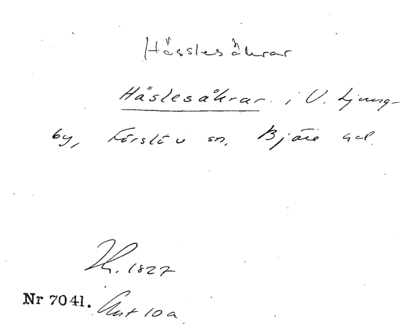 Hässlesåkrar
Häslesåkrar i V. Ljung-
by, Förslöv sn, Bjäre hd.
Th. 1827
Nr 7041. Ant 10a